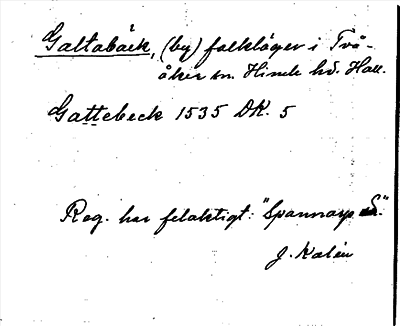 Galtabäck, (by) falkläger i Två-
åker sn. Himle hd. Hall.
Gattebeck 1535 DK. 5
Reg. har felaktigt: "Spannarp S."
J. Kalén